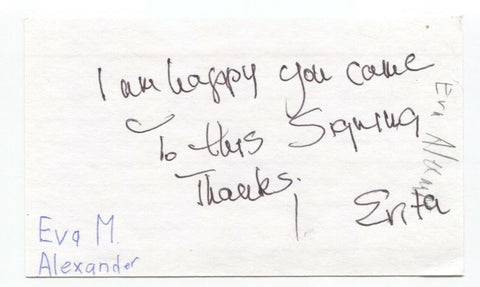 I am happy you came
To this Signing
Thanks.
Erita
Eva Alexan
Eva M.
Alexander